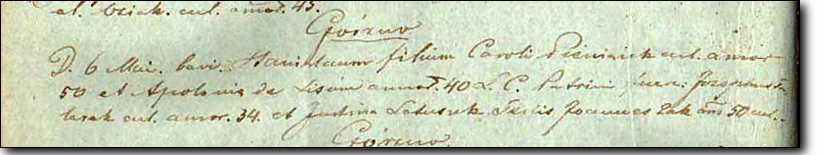 et.Użiek. cul. annor. 45.
Górzno
D. 6 Mai. bavi. Stanislaum filium Caroli Pieniazek cul. annor
50 et Apolonia de Lisum annor. 40 L. C. Patrini fuer:
cul. annor. 34. et Justina Latuszek Testis Joannes Zak ann 50 cul.
Górzno.